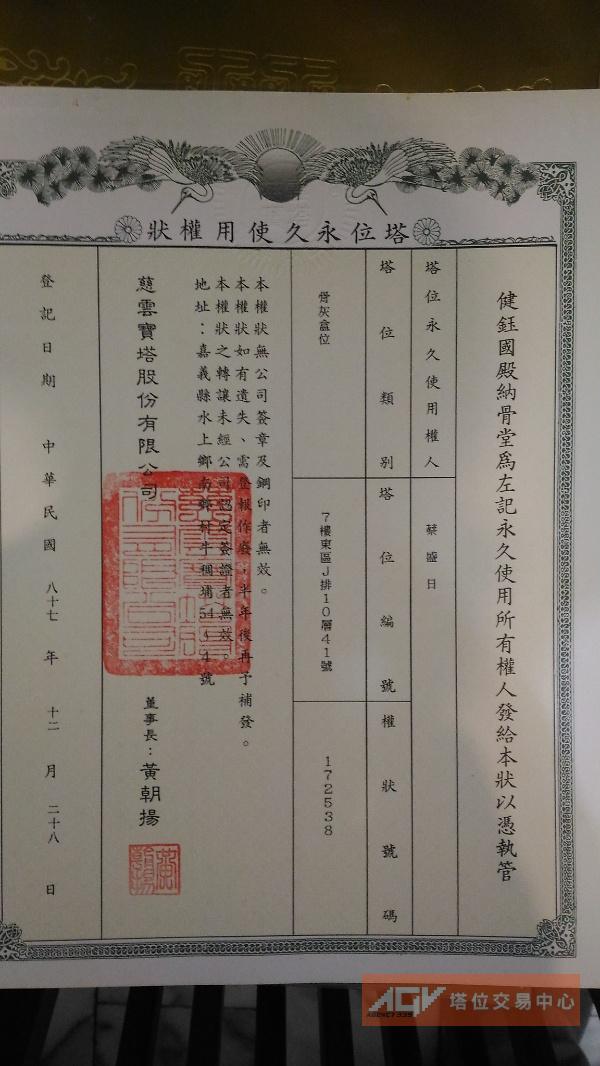 塔位永久使用權狀
健鈺國殿納骨堂為左記永久使用所有權人發給本狀以憑執管
塔位永久使用權人 蔡盛日
塔位類別 塔位編號 權狀號碼
骨灰盒位 7樓東區J排10層41號 172538
本權狀無公司簽章及鋼印者無效。
本權狀如有遺失、需登報作廢，半年後再予補發。
本權狀之轉讓未經公司認定簽證者無效。
地址：嘉義縣水上鄉南鄉村牛稠埔54-4號
慈雲寶塔股份有限公司
董事長：黃朝揚
登記日期 中華民國 八十七 年 十二 月 二十八 日
AGV 塔位交易中心
AGENCY339